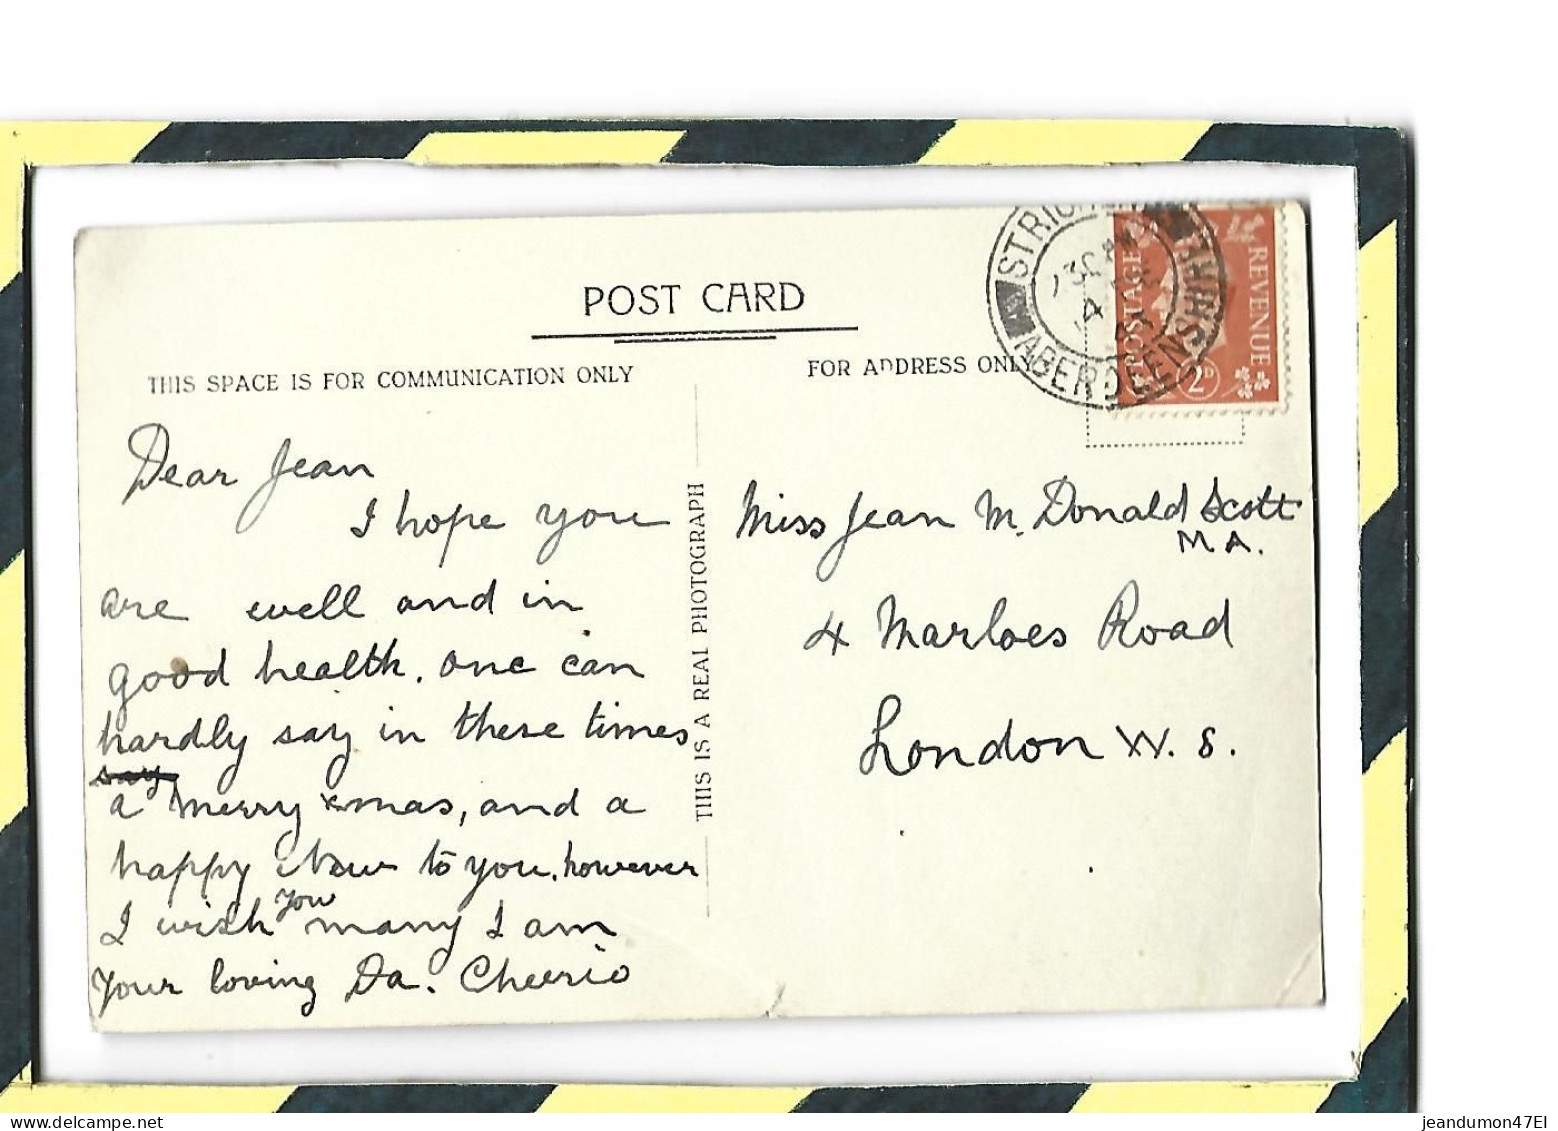 POST CARD
THIS SPACE IS FOR COMMUNICATION ONLY
FOR ADDRESS ONLY
ABERDEENSHIRE
POSTAGE
REVENUE
2D
Dear Jean
I hope you
are well and in
good health. One can
hardly say in these times
say
a merry xmas, and a
happy New to you. however
I wish you many I am
Your loving Da. Cheerio
THIS IS A REAL PHOTOGRAPH
Miss Jean M. Donald Scott
M A.
4 Marloes Road
London W. 8.
jeandumon47El